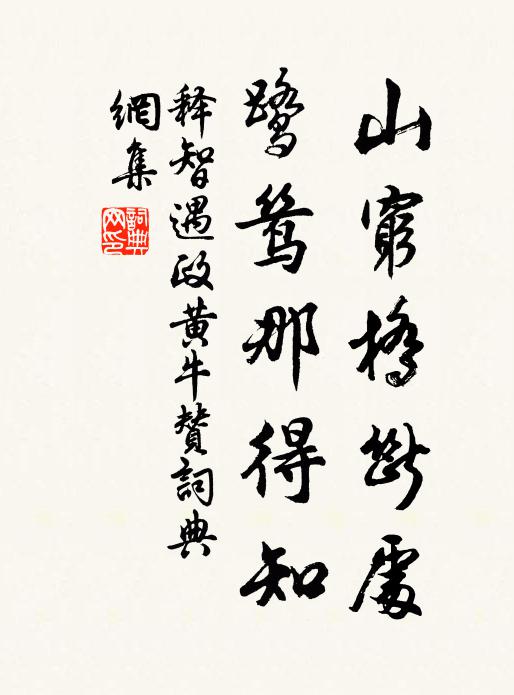 山窮橋斷處
鷺鷥那得知
释智遇政黄牛賛詞典
網集
詞典网印